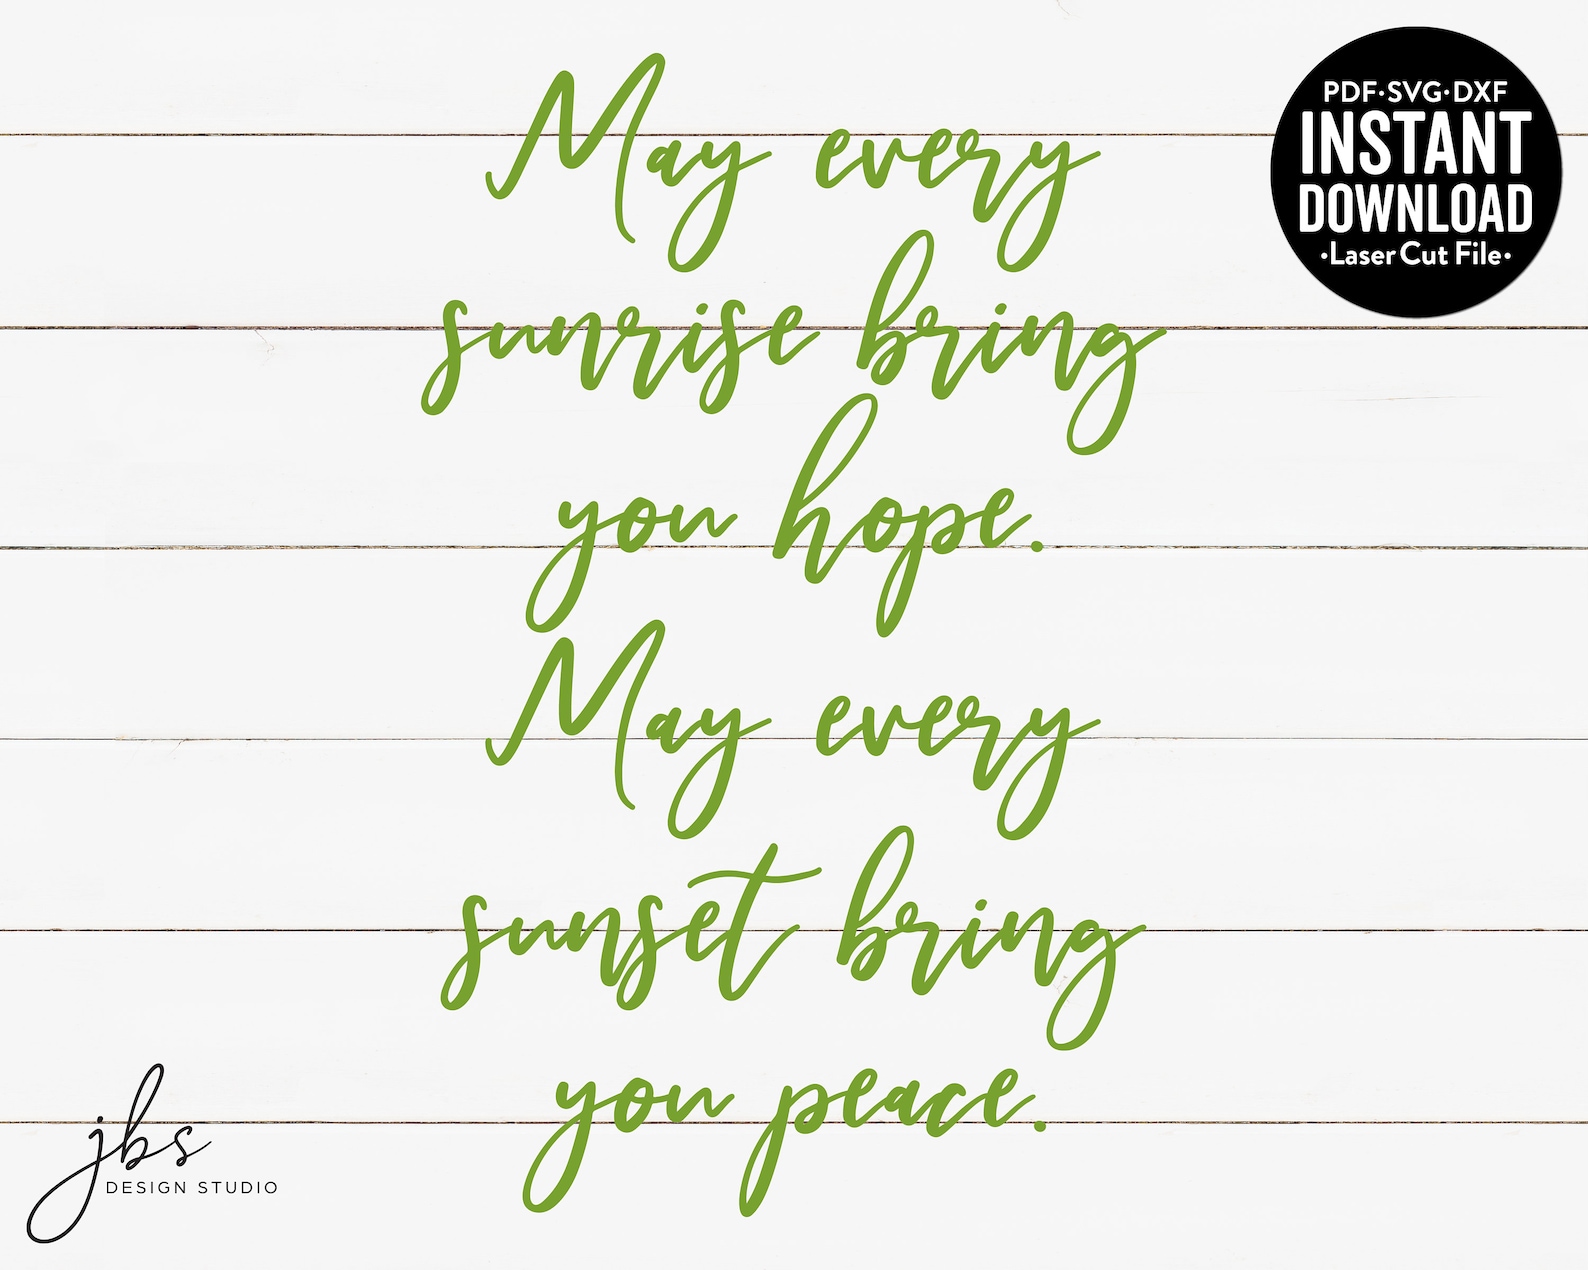 May every
sunrise bring
you hope.
May every
sunset bring
you peace.
PDF·SVG·DXF
INSTANT
DOWNLOAD
·Laser Cut File·
jbs
DESIGN STUDIO